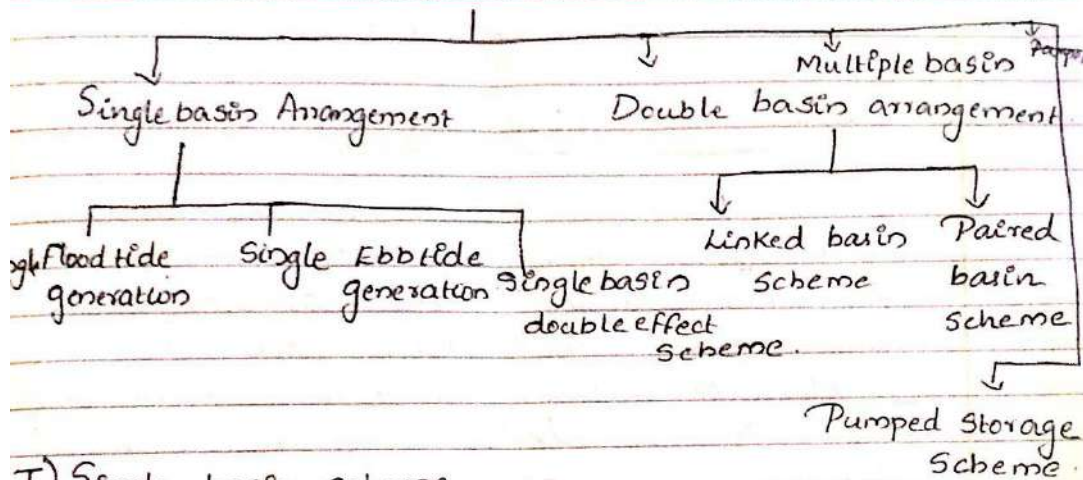 Multiple basin
Single basin Arrangement
Double basin arrangement
Flood tide
generation
Single Ebb tide
generation
Single basin
double effect
scheme.
Linked basin
scheme
Paired
basin
scheme
Pumped Storage
Scheme.
I) Single basin scheme